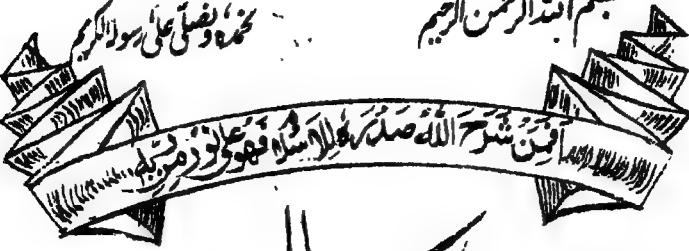 بسم اللہ الرحمٰن الرحیم
نحمدہ ونصلی علیٰ رسولہ الکریم
اَفَمَنْ شَرَحَ اللّٰهُ صَدْرَهٗ لِلْاِسْلَامِ فَهُوَ عَلٰی نُوْرٍ مِّنْ رَّبِّهٖ